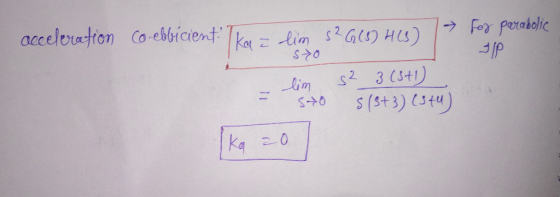 acceleration co-ebbicient: Ka = lim s→0 s² G(s) H(s) → For parabolic I/P
= lim s→0 s² 3(s+1) / s(s+3)(s+4)
Ka = 0